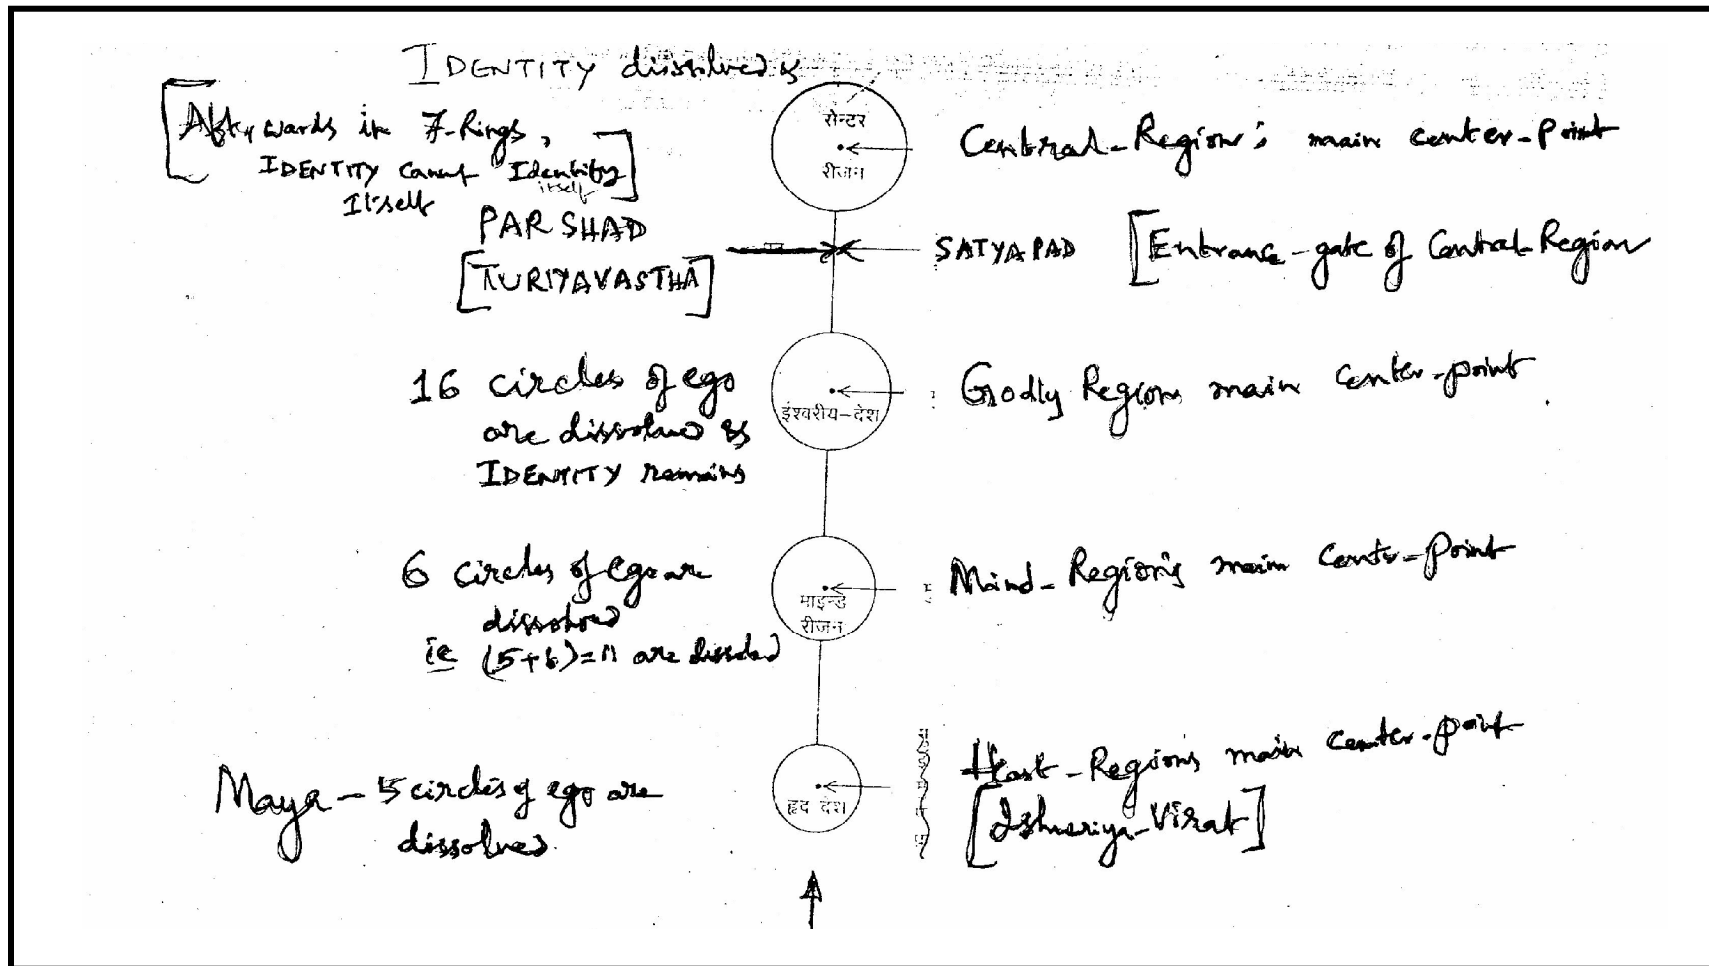 IDENTITY dissolved &
[Afterwards in 7-Rings,
IDENTITY cannot Identity]
itself
Itself
सेन्टर
रीजन
Central-Region's main center-Point
PARSHAD
[TURIYAVASTHA]
SATYAPAD [Entrance-gate of Central-Region
16 circles of ego
are dissolved &
IDENTITY remains
ईश्वरीय-देश
Godly Regions main center-point
6 circles of ego are
dissolved
ie (5+6)=11 are dissolved
माइन्ड
रीजन
Mind-Region's main center-Point
Maya - 5 circles of ego are
dissolved
हृद देश
Heart-Regions main center-point
[Ishwariya-Virat]